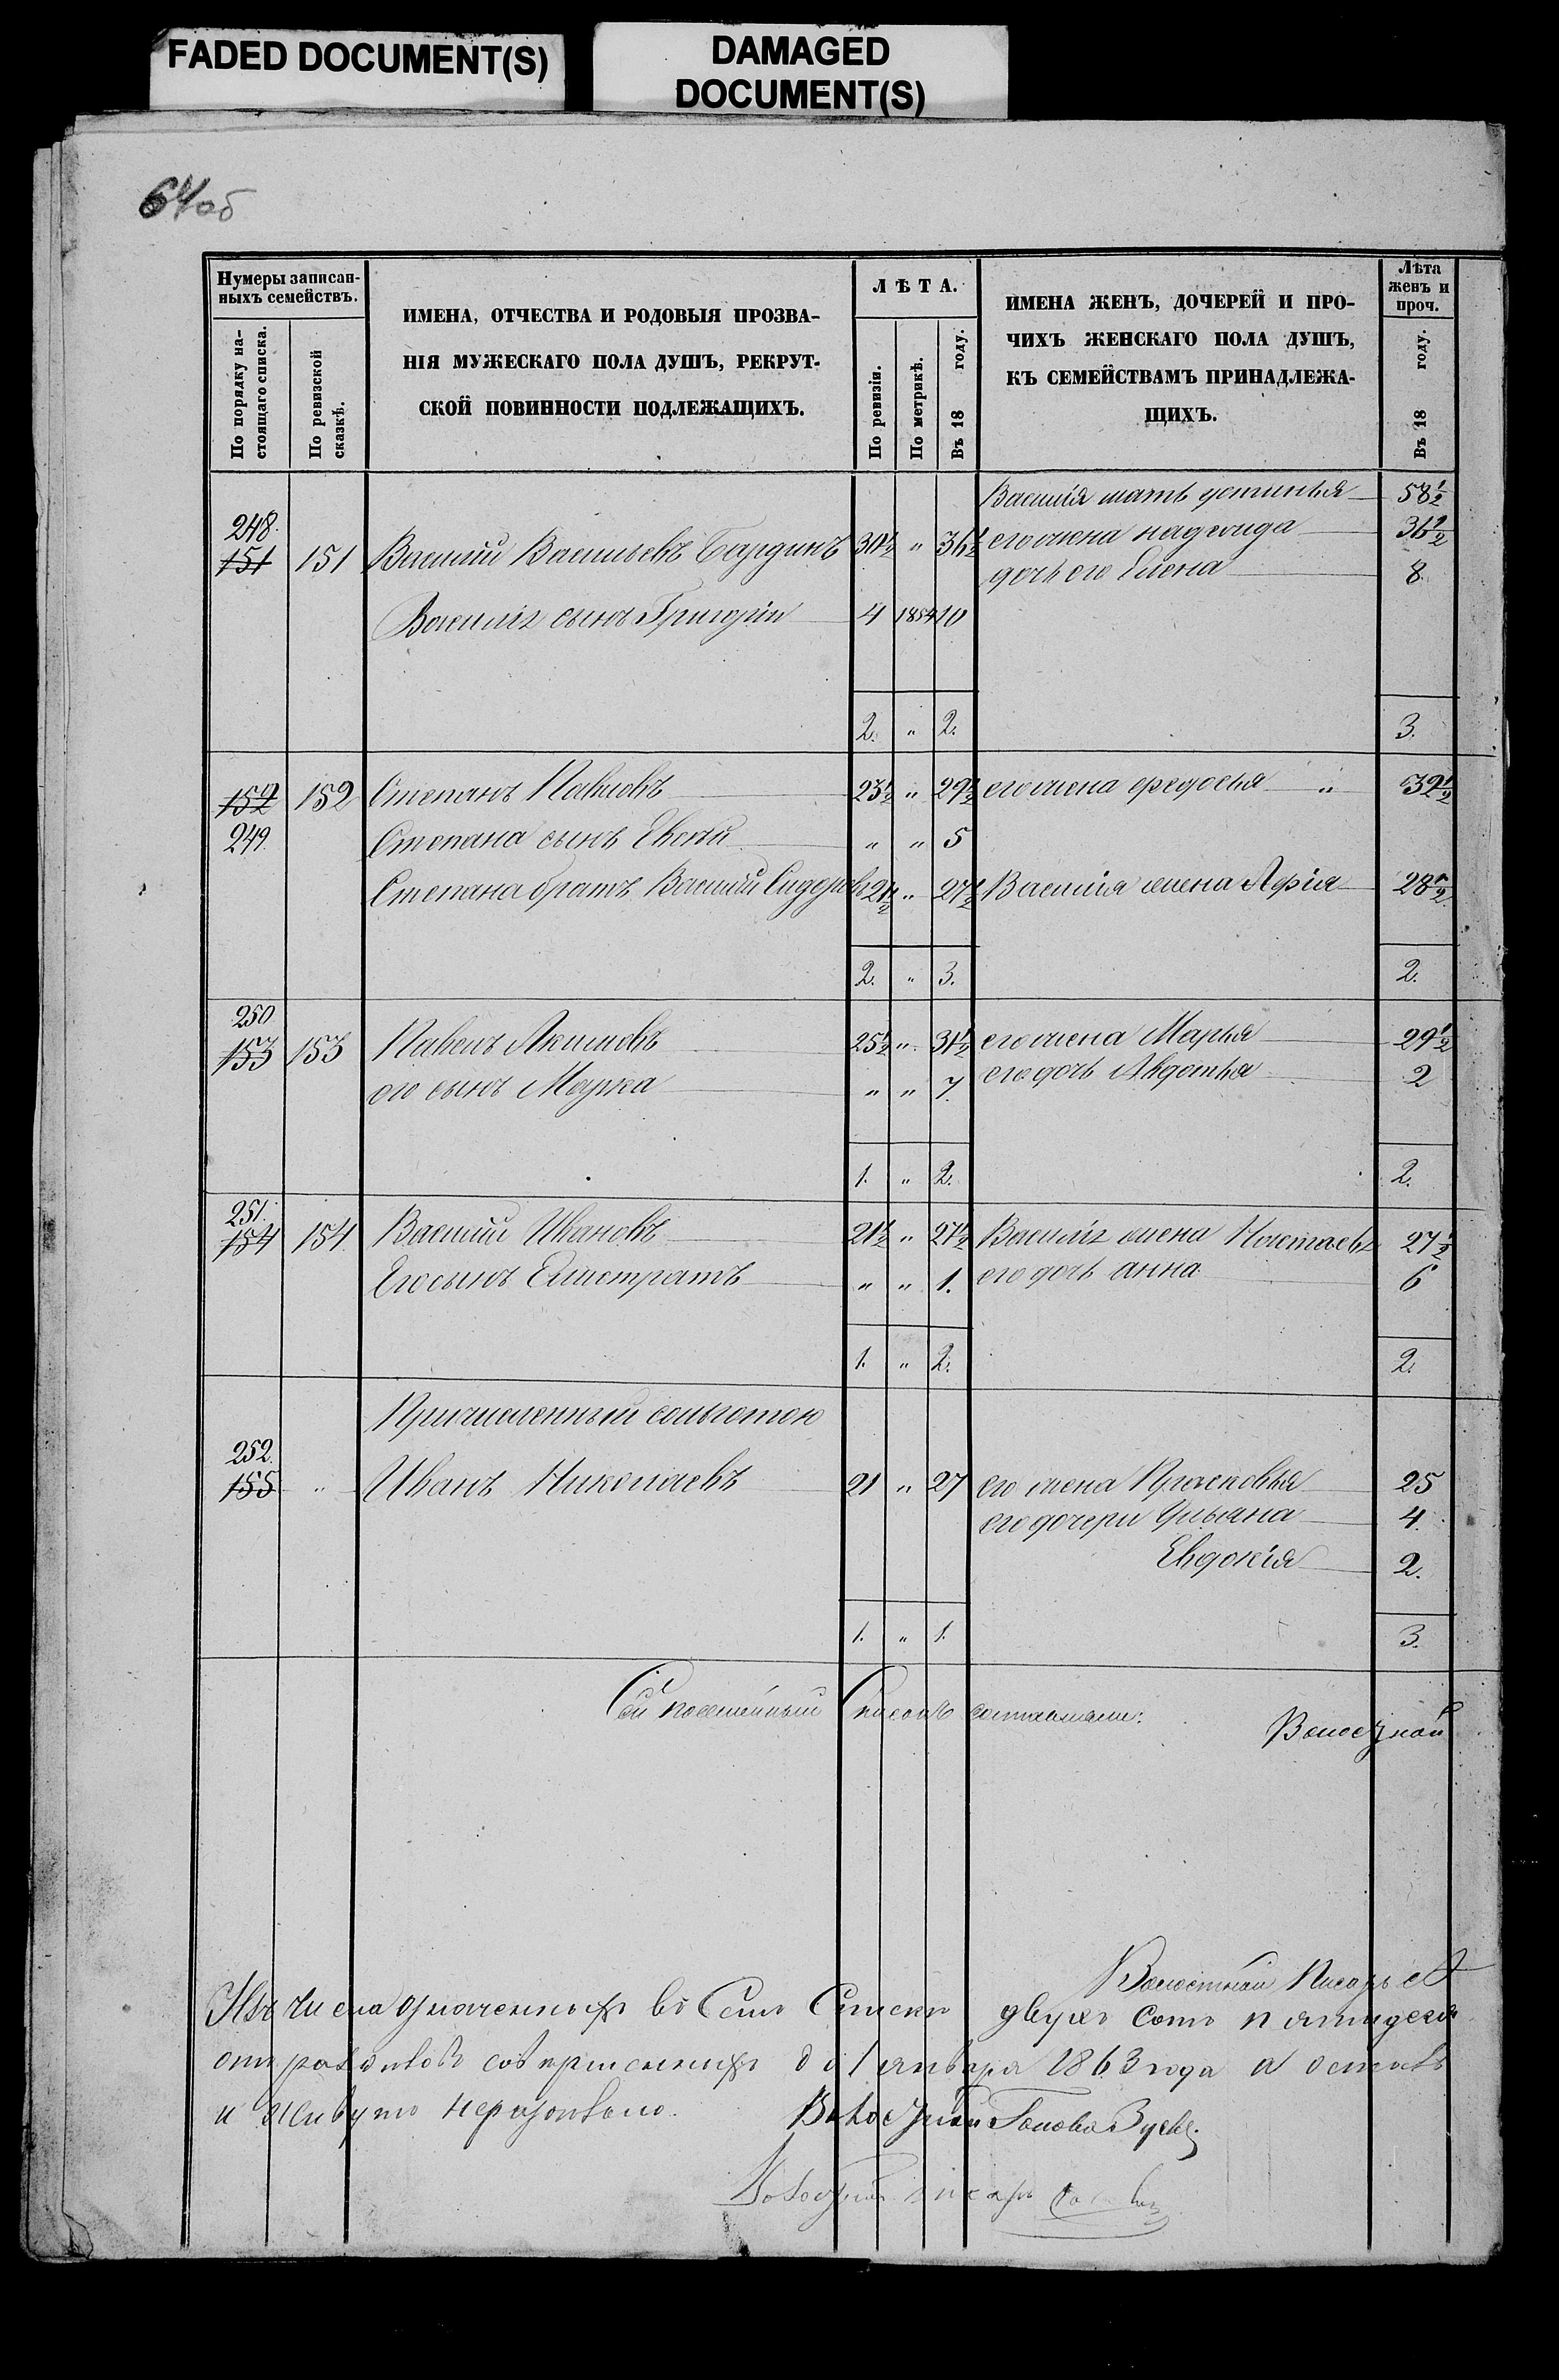 FADED DOCUMENT(S)
DAMAGED
DOCUMENT(S)
64об
Нумеры записан-
ныхъ семействъ.
По порядку на-
стоящаго списка.
По ревизской
сказкѣ.
ИМЕНА, ОТЧЕСТВА И РОДОВЫЯ ПРОЗВА-
НІЯ МУЖЕСКАГО ПОЛА ДУШЪ, РЕКРУТ-
СКОЙ ПОВИННОСТИ ПОДЛЕЖАЩИХЪ.
ЛѢТА.
По ревизіи.
По метрикѣ.
Въ 18 году.
ИМЕНА ЖЕНЪ, ДОЧЕРЕЙ И ПРО-
ЧИХЪ ЖЕНСКАГО ПОЛА ДУШЪ,
КЪ СЕМЕЙСТВАМЪ ПРИНАДЛЕЖА-
ЩИХЪ.
Лѣта
женъ и
проч.
Въ 18 году.
Василія мать устинья 58½
248.
151 151 Василій Васильевъ 30½ " 36½ его жена надежида 36½
дочь его Елена 8.
Василія сынъ Григорій 4 1854 10
2. " 2. 3.
152 152 Степанъ Павловъ 23½ " 29½ его жена федосья " 32½
249. Степана сынъ Евсей " " 5
Степана братъ Василій Сидоровъ 21½ " 27½ Василія жена 28½
2. " 3. 2.
250
153 153 Павелъ Акимовъ 25½ " 31½ его жена Марья 29½
его сынъ Марка " " 7. его дочь Авдотья 2
1. " 2. 2.
251.
154 154. Василій Ивановъ 21½ " 27½ Василія жена Настасья 27½
Его сынъ Елистратъ " " 1. его дочь анна 6
1. " 2. 2.
Причисленный сольготою
252.
155 " Иванъ Николаевъ 21 " 27 его жена Прасковья 25
его дочери Ульяна 4.
Евдокія 2.
1. " 1. 3.
Сей посемейный Списокъ составляли:
Волостной
Волостной Писарь
Изъ числа означенныхъ въ Семъ Списки двухъ Сотъ пятидеся
до 1 января 1863 года а
и живутъ
Волостной Голова Зуевъ
писарь